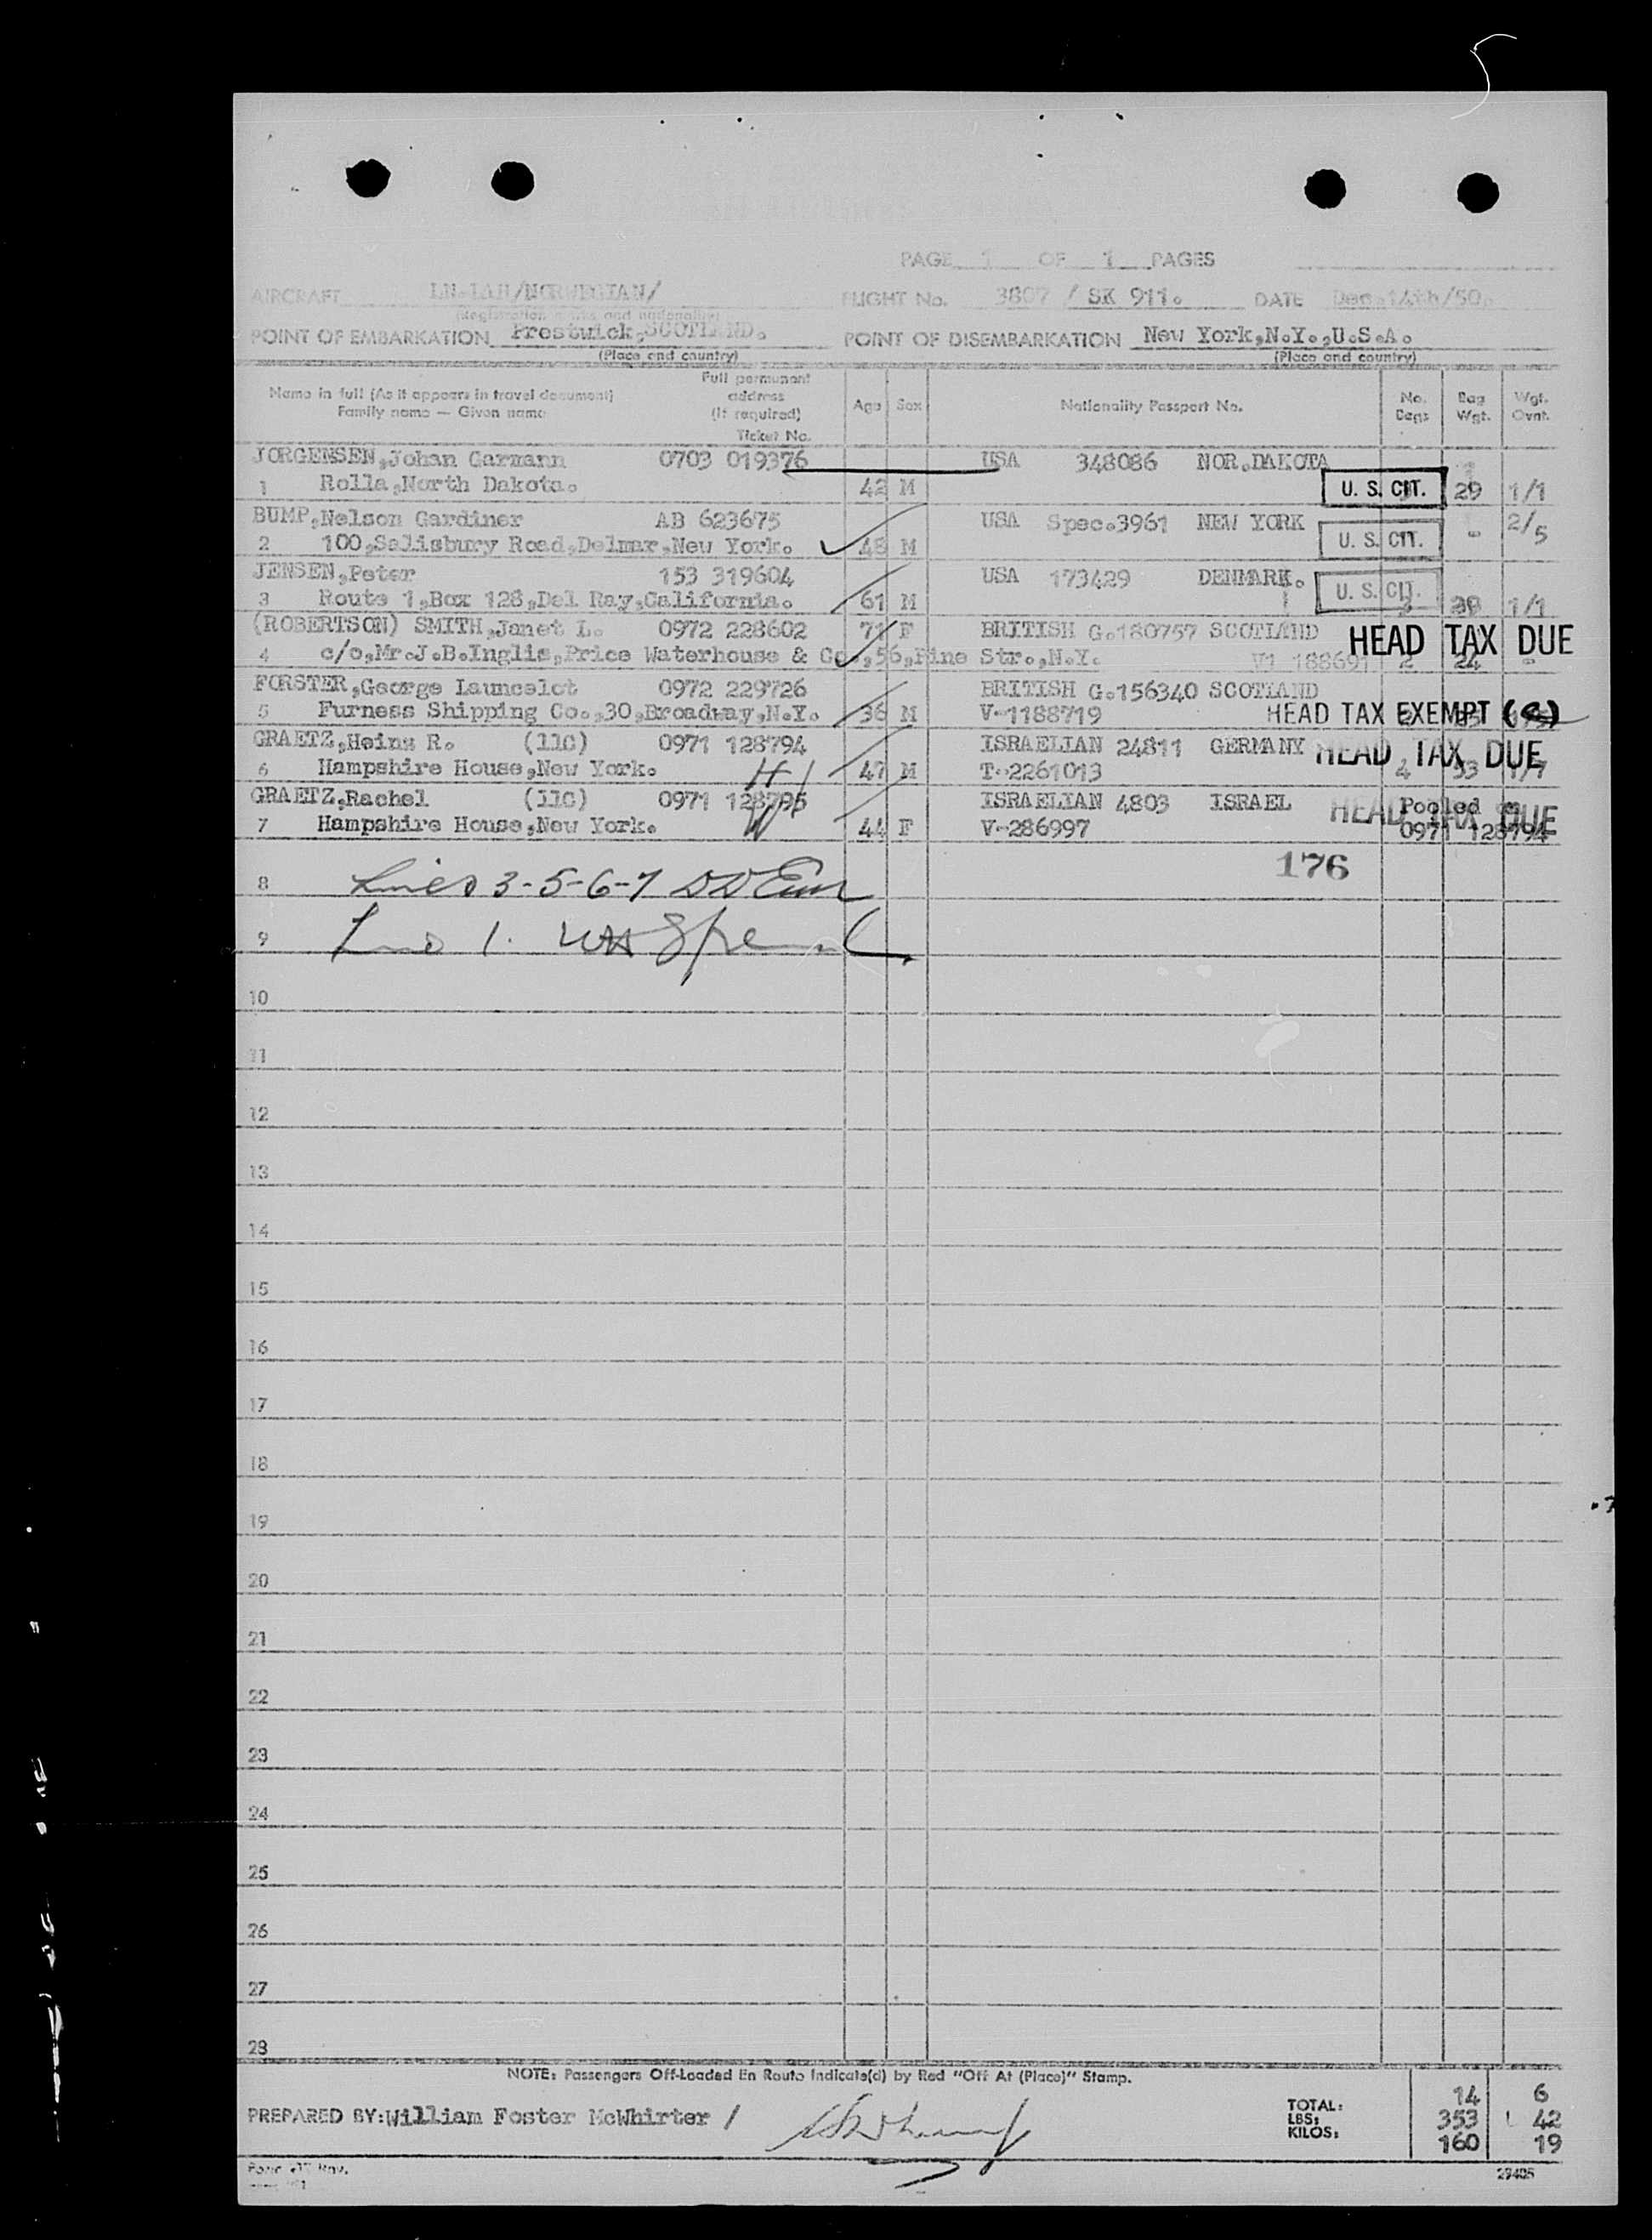 PAGE 1 OF 1 PAGES
AIRCRAFT LN-LAH/NORWEGIAN/ FLIGHT No. 3807 / SK 911. DATE Dec.14th/50.
(Registration marks and nationality)
POINT OF EMBARKATION Prestwick,SCOTLAND. POINT OF DISEMBARKATION New York,N.Y.,U.S.A.
(Place and country) (Place and country)
Name in full (As it appears in travel document) Family name — Given name Full permanent address (If required) Ticket No. Age Sex Nationality Passport No. No. Bags Bag Wgt. Wgt. Ovnt.
JORGENSEN,Johan Garmann 0703 019376 USA 348086 NOR.DAKOTA
1 Rolla,North Dakota. 42 M U. S. CIT. 29 1/1
BUMP,Nelson Gardiner AB 623675 USA Spec.3961 NEW YORK 2/5
2 100,Salisbury Road,Delmar,New York. 48 M U. S. CIT. -
JENSEN,Peter 153 319604 USA 173429 DENMARK.
3 Route 1,Box 128,Del Ray,California. 61 M U. S. CIT. 1/1
(ROBERTSON) SMITH,Janet L. 0972 228602 71 F BRITISH G.180757 SCOTLAND HEAD TAX DUE
4 c/o,Mr.J.B.Inglis,Price Waterhouse & Co.,56,Pine Str.,N.Y. V1 188691 2 24 -
FORSTER,George Launcelot 0972 229726 BRITISH G.156340 SCOTLAND
5 Furness Shipping Co.,30,Broadway,N.Y. 36 M V-1188719 HEAD TAX EXEMPT
GRAETZ,Heinz R. (llC) 0971 128794 ISRAELIAN 24811 GERMANY HEAD TAX DUE
6 Hampshire House,New York. 47 M T-2261013 4 53 1/7
GRAETZ,Rachel (llC) 0971 128795 ISRAELIAN 4803 ISRAEL HEAD TAX DUE Pooled
7 Hampshire House,New York. 44 F V-286997 0971 128794
176
8 Lines 3-5-6-7
9 Line 1.
10
11
12
13
14
15
16
17
18
19
20
21
22
23
24
25
26
27
28
NOTE: Passengers Off-Loaded En Route Indicate(d) by Red "Off At (Place)" Stamp.
PREPARED BY:William Foster McWhirter /
TOTAL: 14 6
LBS: 353 42
KILOS: 160 19
29405